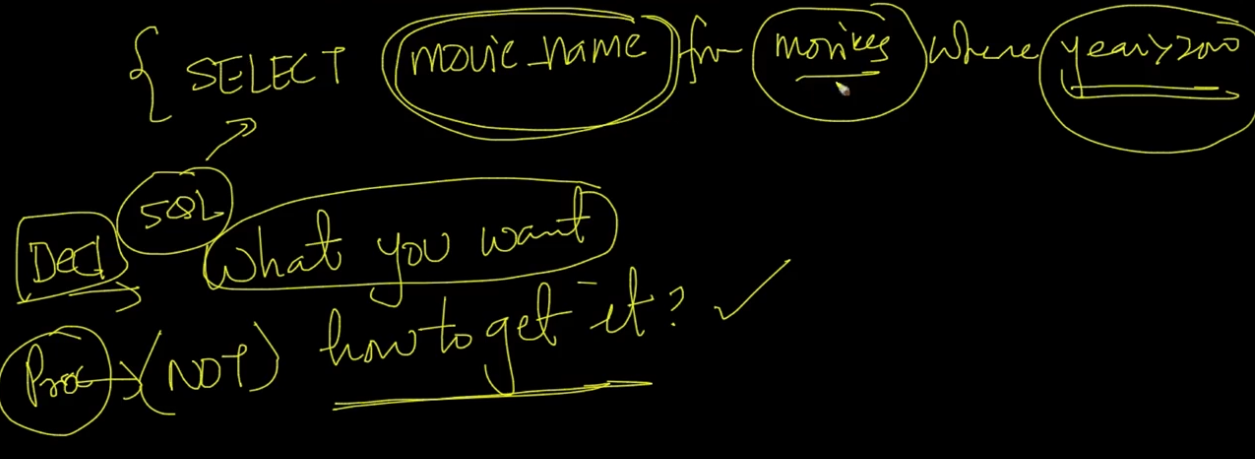 { SELECT movie_name from movies where year>2000
SQL
Decl What you want
Proc → (NOT) how to get it? ✓